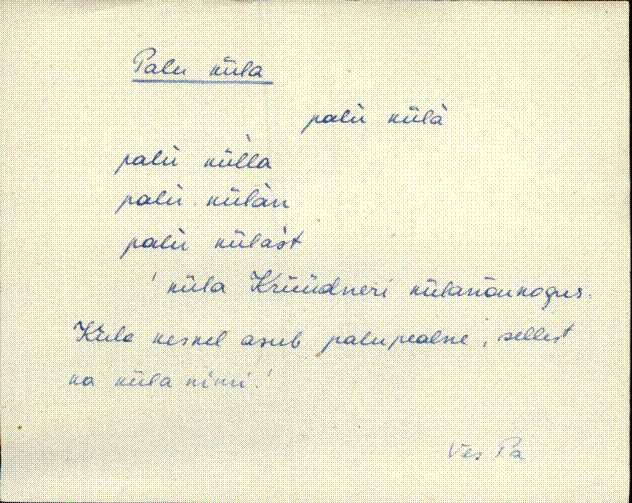 Palu küla
palù külà
palù kül̀la
palù külàn
palù külàst
' küla Krüüdneri külanõukogus.
Küla keskel asub palupealne, sellest
ka küla nimi.'
Ves Pa